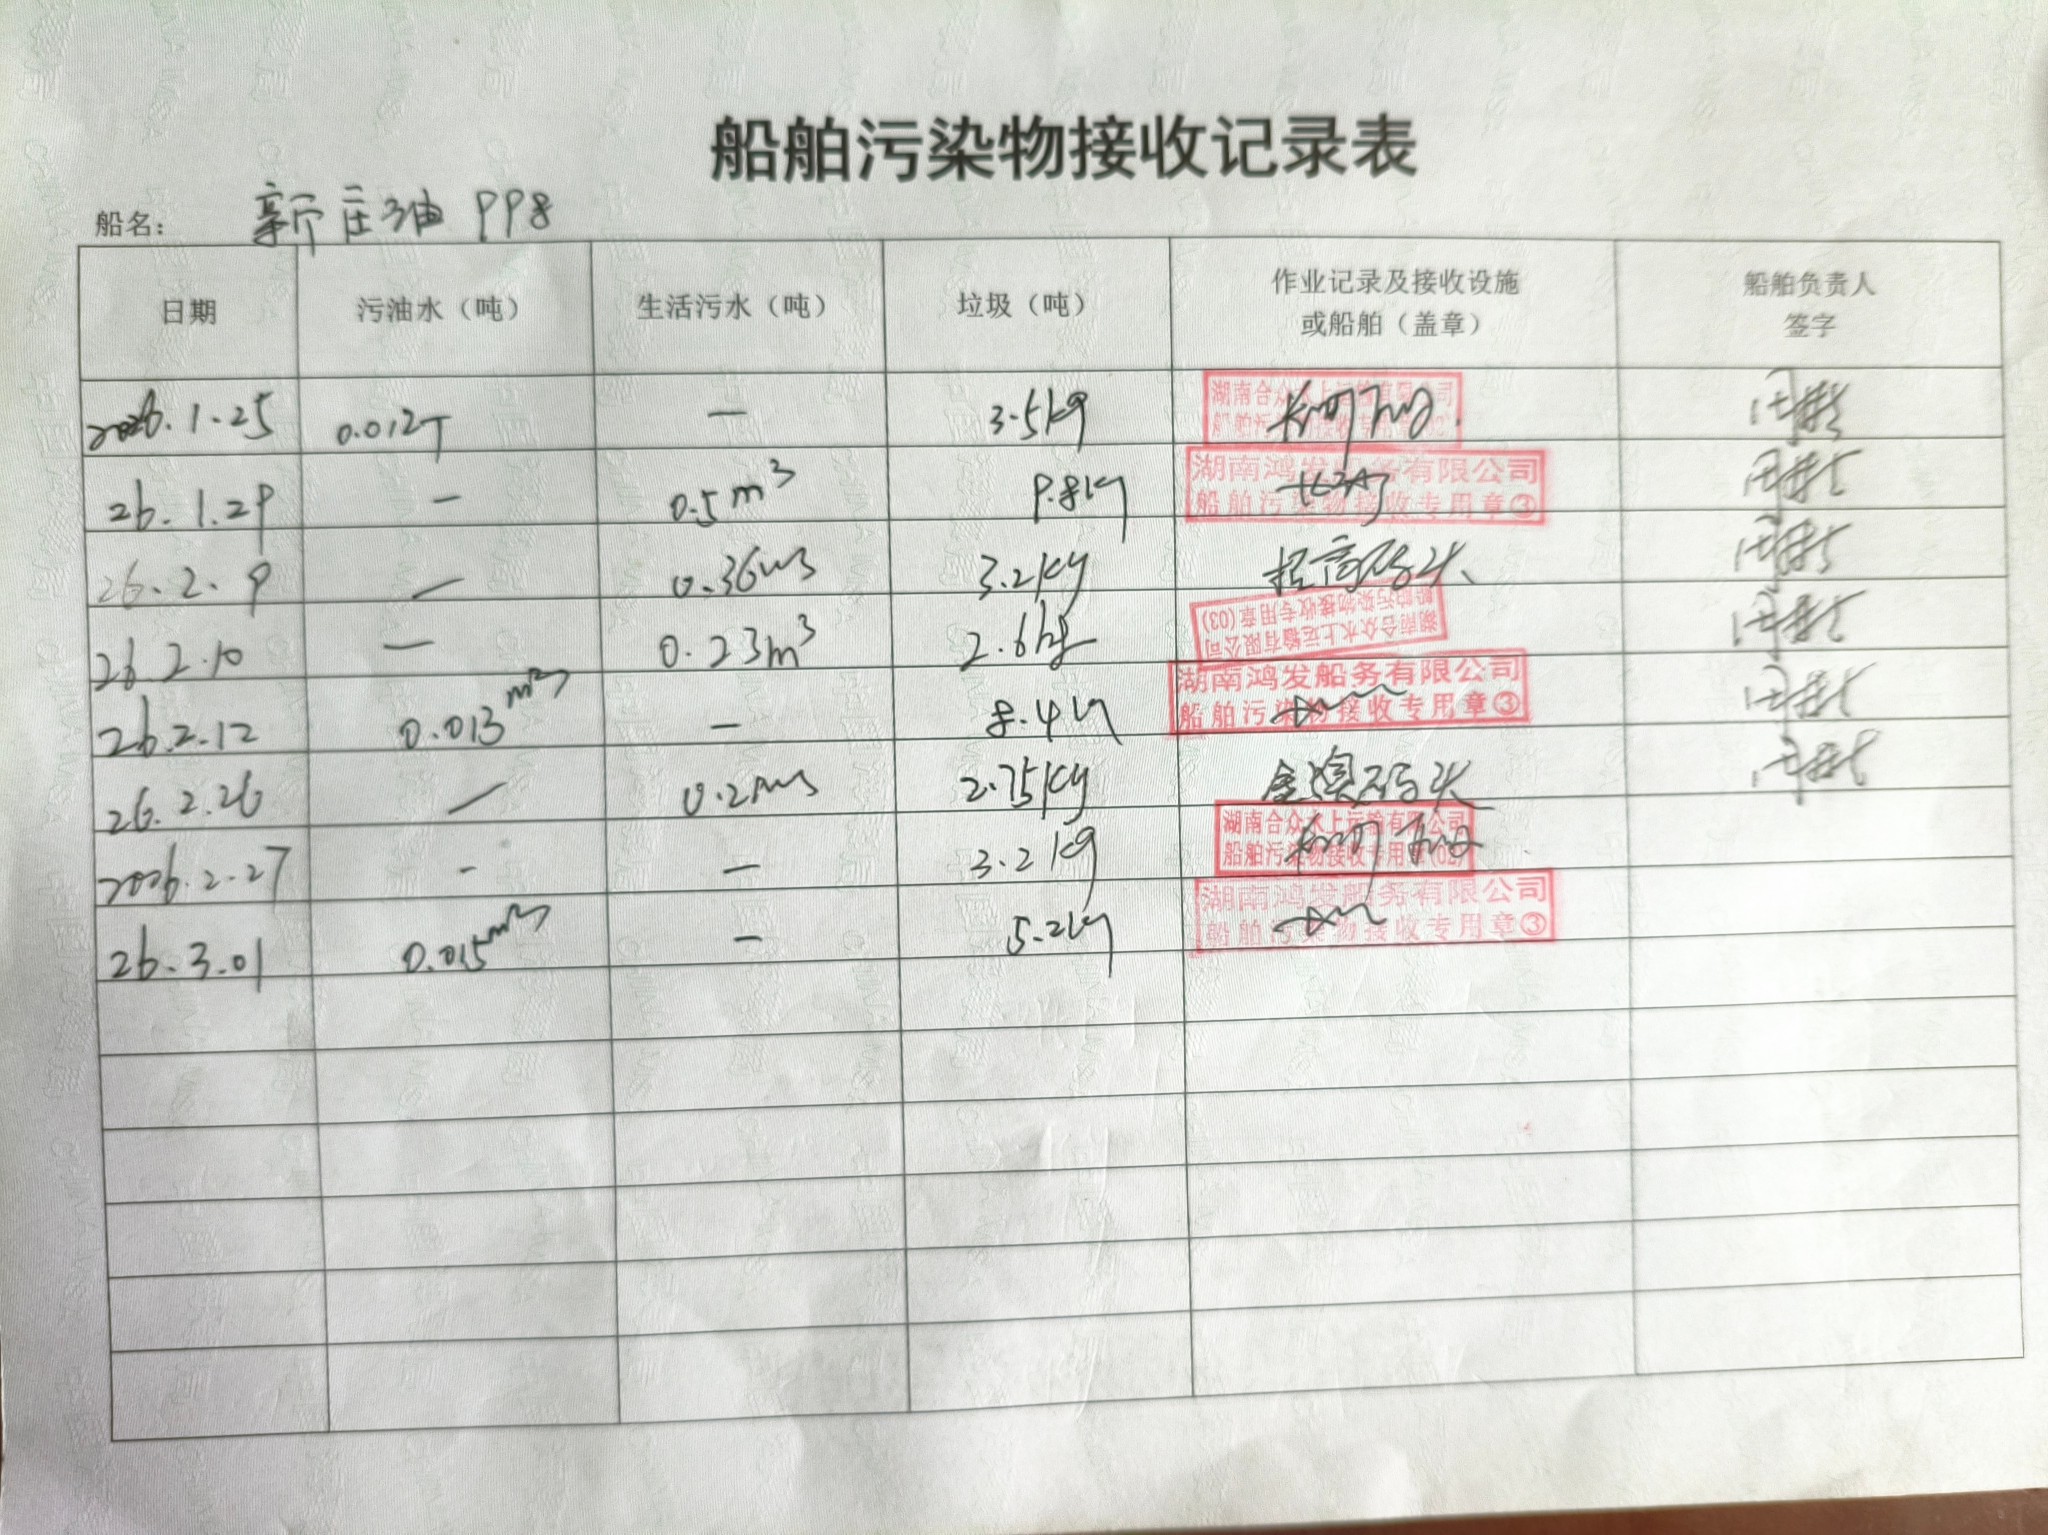 船舶污染物接收记录表
船名： 新庄油 998
日期 污油水（吨） 生活污水（吨） 垃圾（吨） 作业记录及接收设施或船舶（盖章） 船舶负责人签字
2026.1.25 0.012T — 3.5kg 湖南合众水上运输有限公司 船舶污染物接收专用章(02)
26.1.29 — 0.5m³ 9.8kg 湖南鸿发船务有限公司 船舶污染物接收专用章③
26.2.9 — 0.36m³ 3.2kg 招商码头
26.2.10 — 0.23m³ 2.6kg 湖南合众水上运输有限公司 船舶污染物接收专用章(03)
26.2.12 0.013m³ — 8.4kg 湖南鸿发船务有限公司 船舶污染物接收专用章③
26.2.26 / 0.2m³ 2.75kg 金澳码头
2026.2.27 - — 3.2kg 湖南合众水上运输有限公司 船舶污染物接收专用章(02)
26.3.01 0.015m³ — 5.2kg 湖南鸿发船务有限公司 船舶污染物接收专用章③